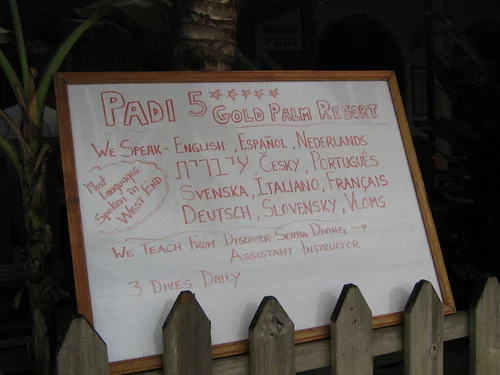 PADI 5 ☆☆☆☆☆ GOLD PALM RESORT
WE SPEAK - ENGLISH, ESPAÑOL, NEDERLANDS
עיברית ČESKY, PORTUGUÊS
SVENSKA, ITALIANO, FRANÇAIS
DEUTSCH, SLOVENSKY, VLOMS
Most
Languages
Spoken in
WEST END
WE TEACH FROM DISCOVER SCUBA DIVING →
ASSISTANT INSTRUCTOR
3 DIVES DAILY
PADI